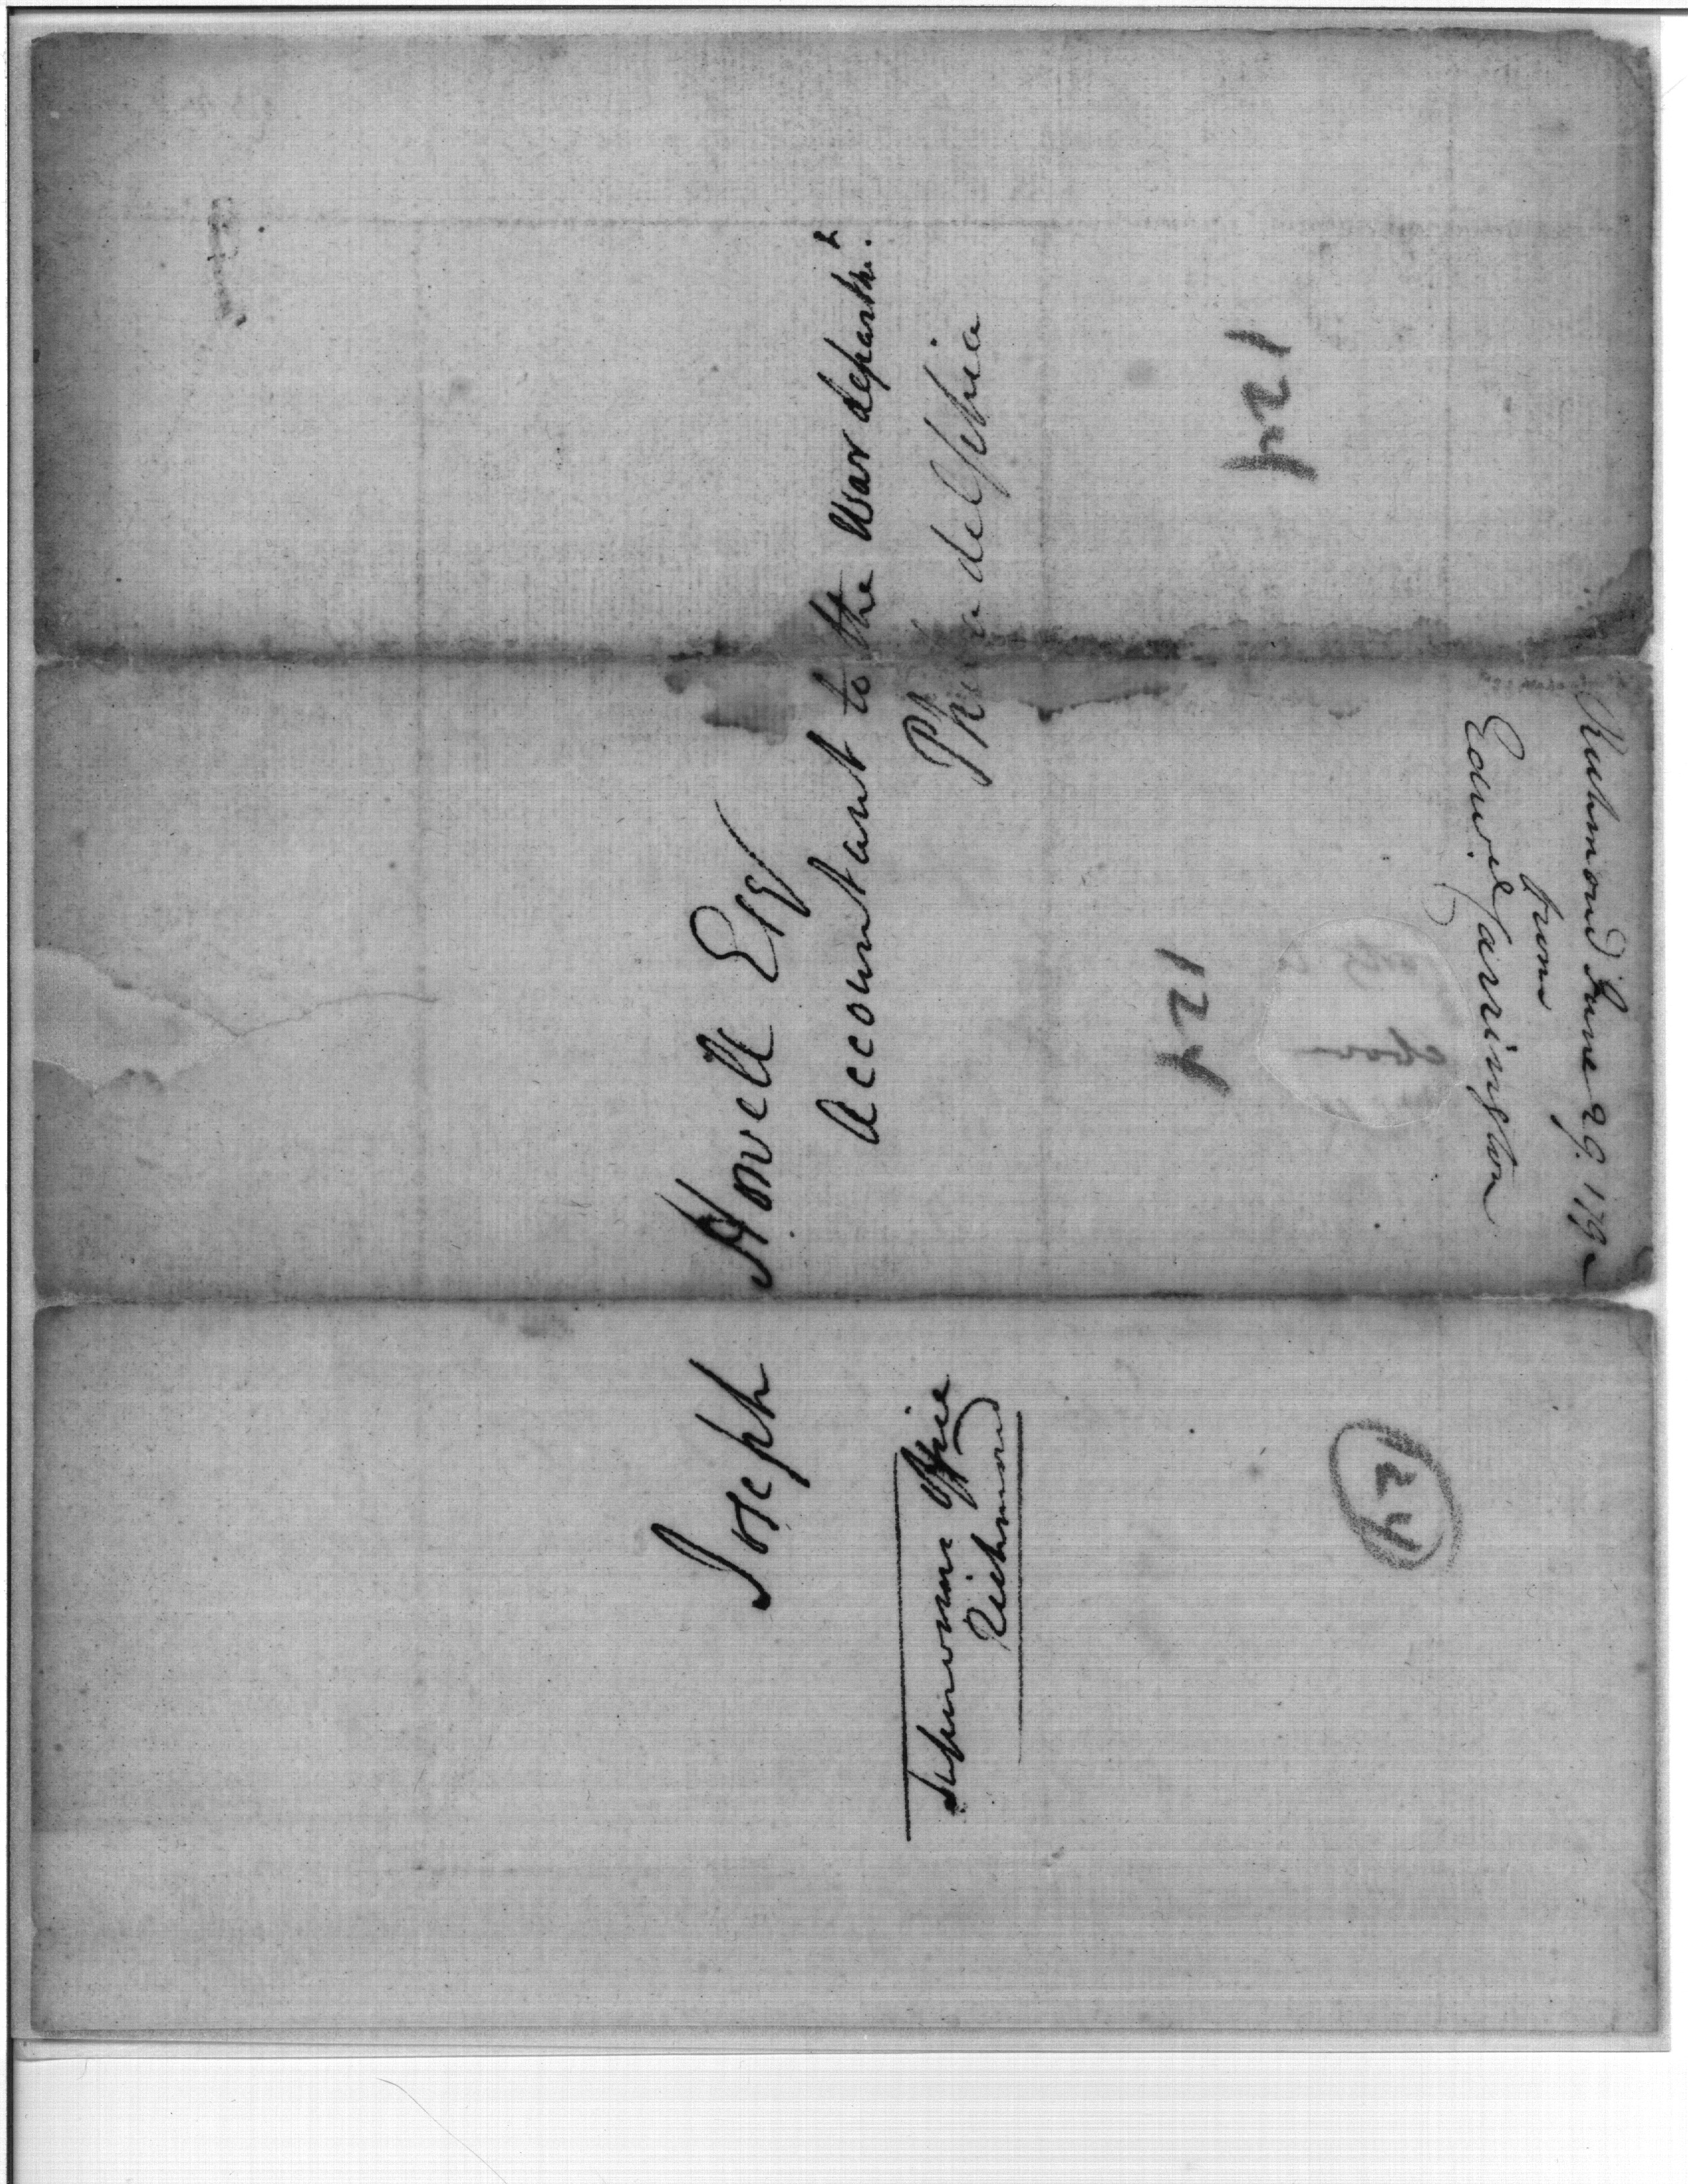 Joseph Howell Esq
Accountant to the War departm.t
Philadelphia
Supervisors Office
Richmond
124
124
124
Richmond June 29. 1792
from
Edwd. Carrington